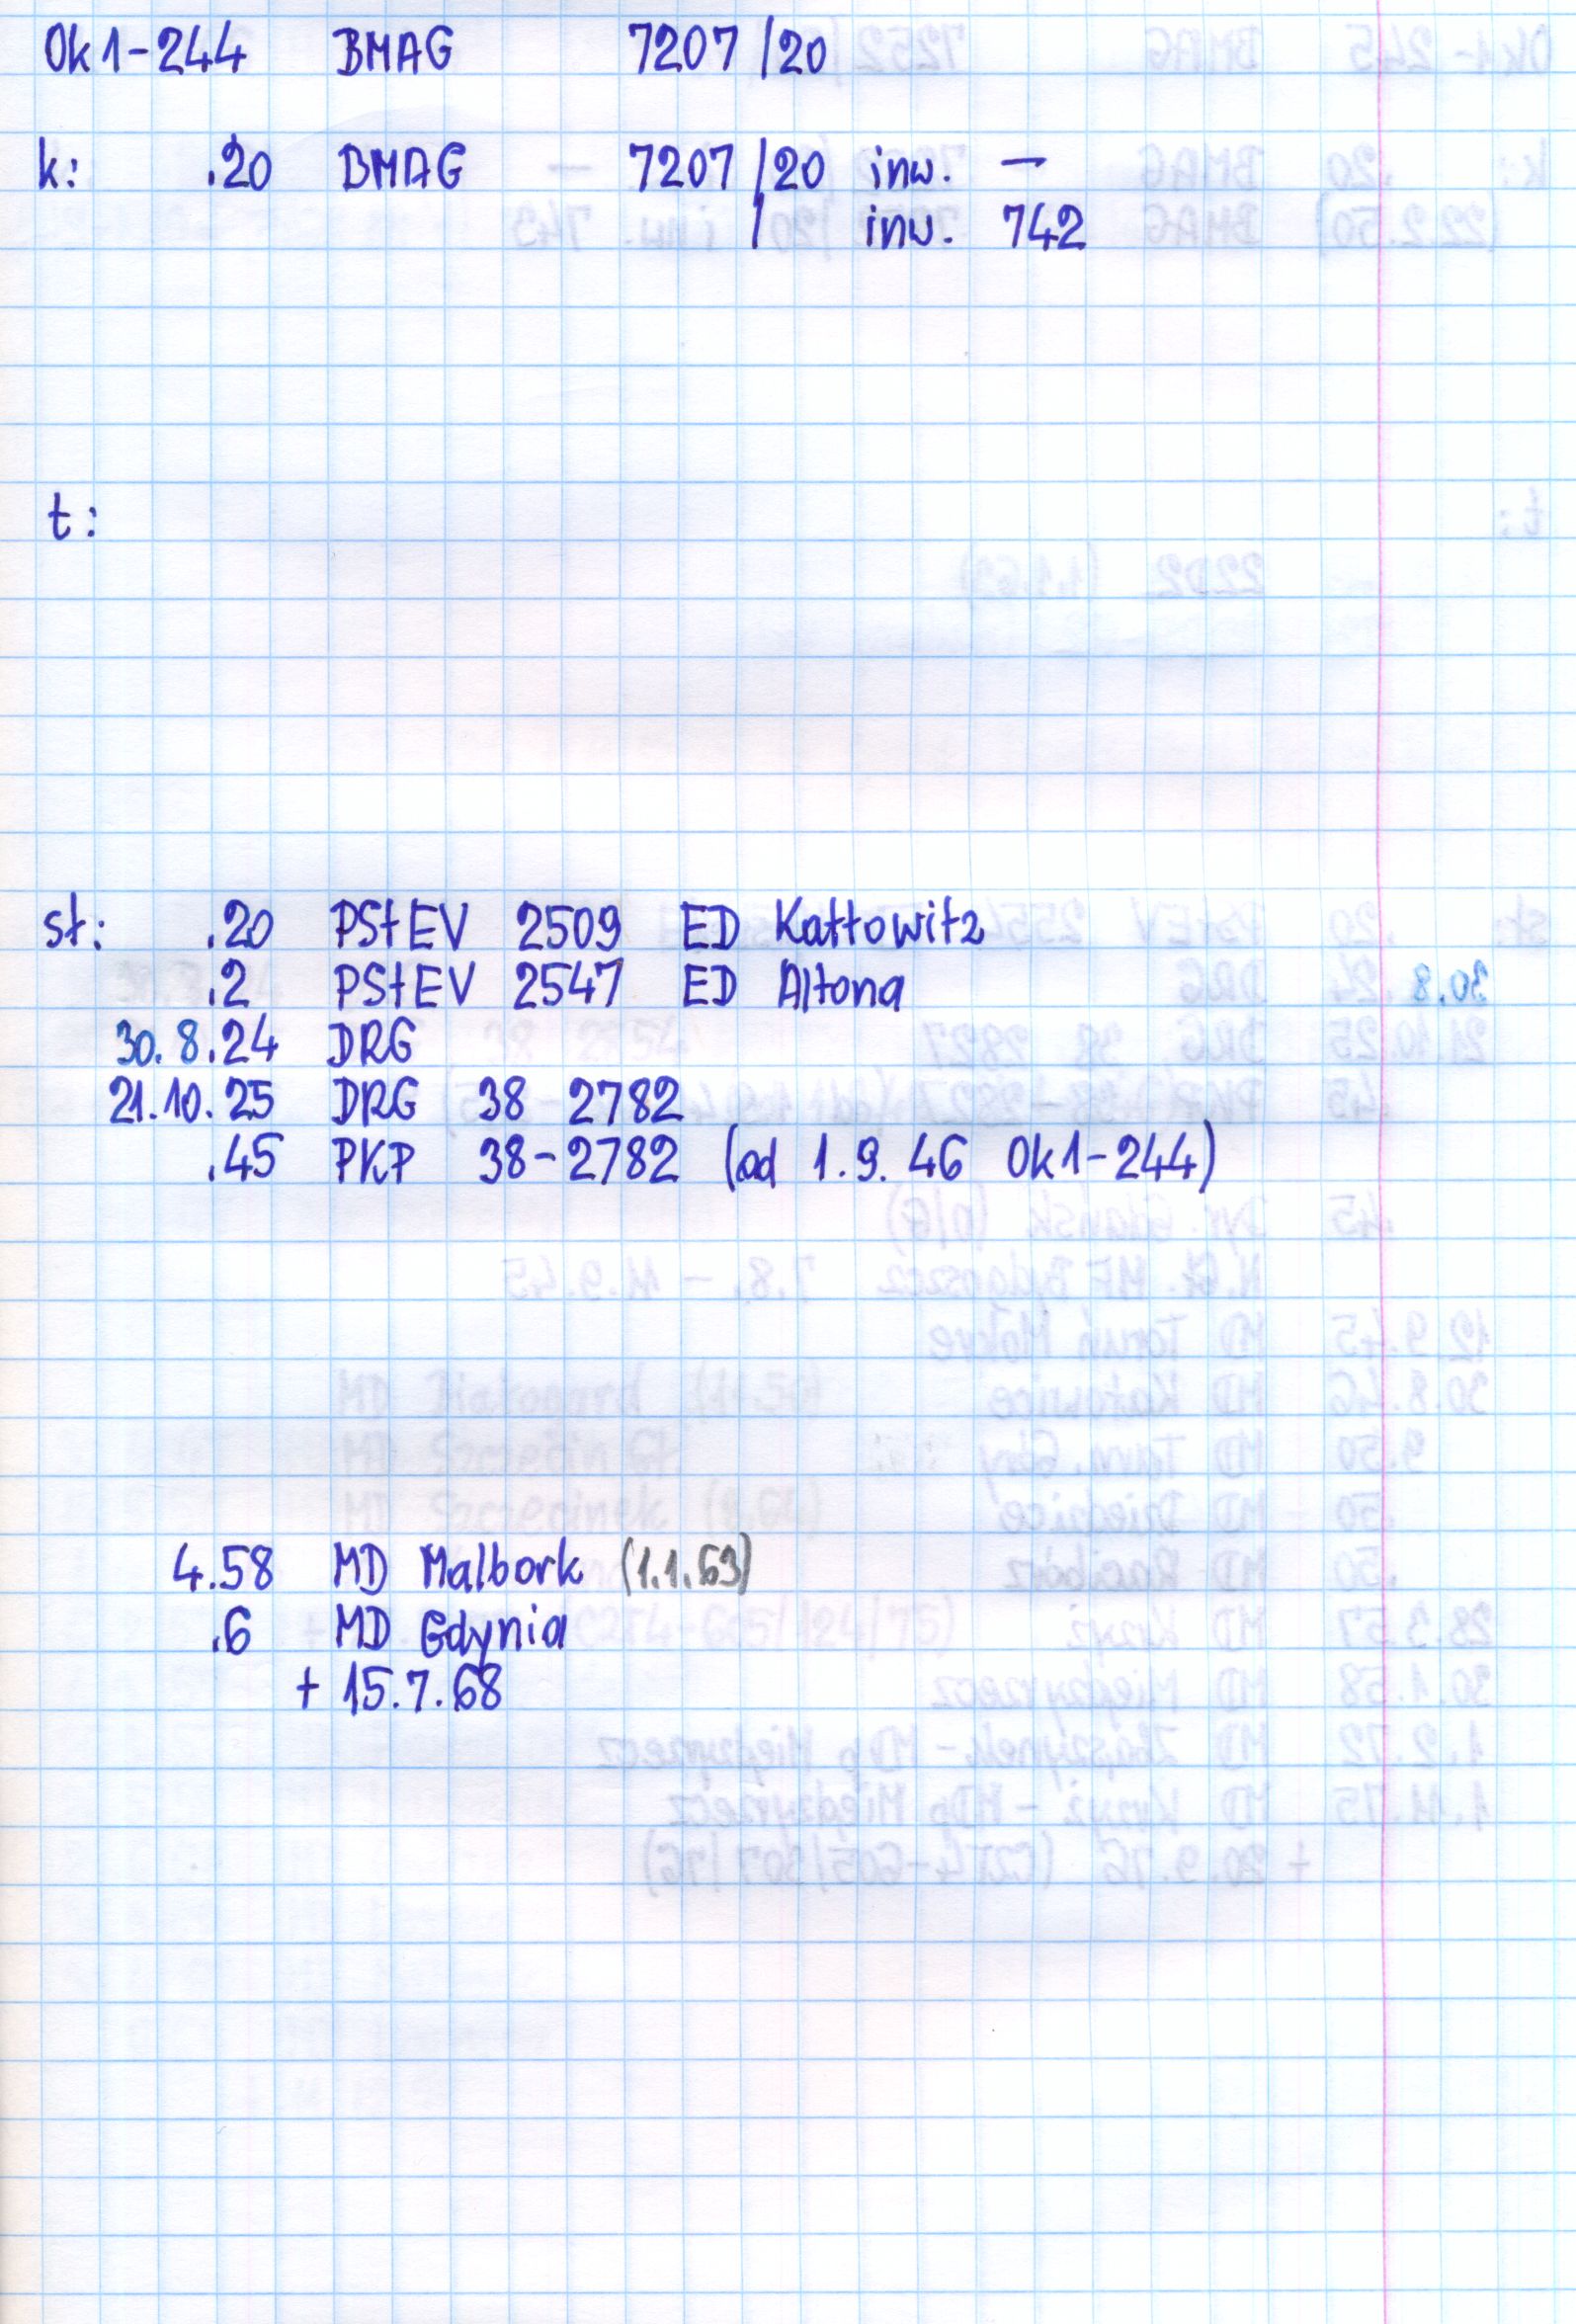 Ok1-244 BMAG 7207/20
k: .20 BMAG 7207/20 inw. —
/ inw. 742
t:
st: .20 PStEV 2509 ED Kattowitz
.2 PStEV 2547 ED Altona
30.8.24 DRG
21.10.25 DRG 38 2782
.45 PKP 38-2782 (od 1.9.46 Ok1-244)
4.58 MD Malbork (1.1.63)
.6 MD Gdynia
+ 15.7.68